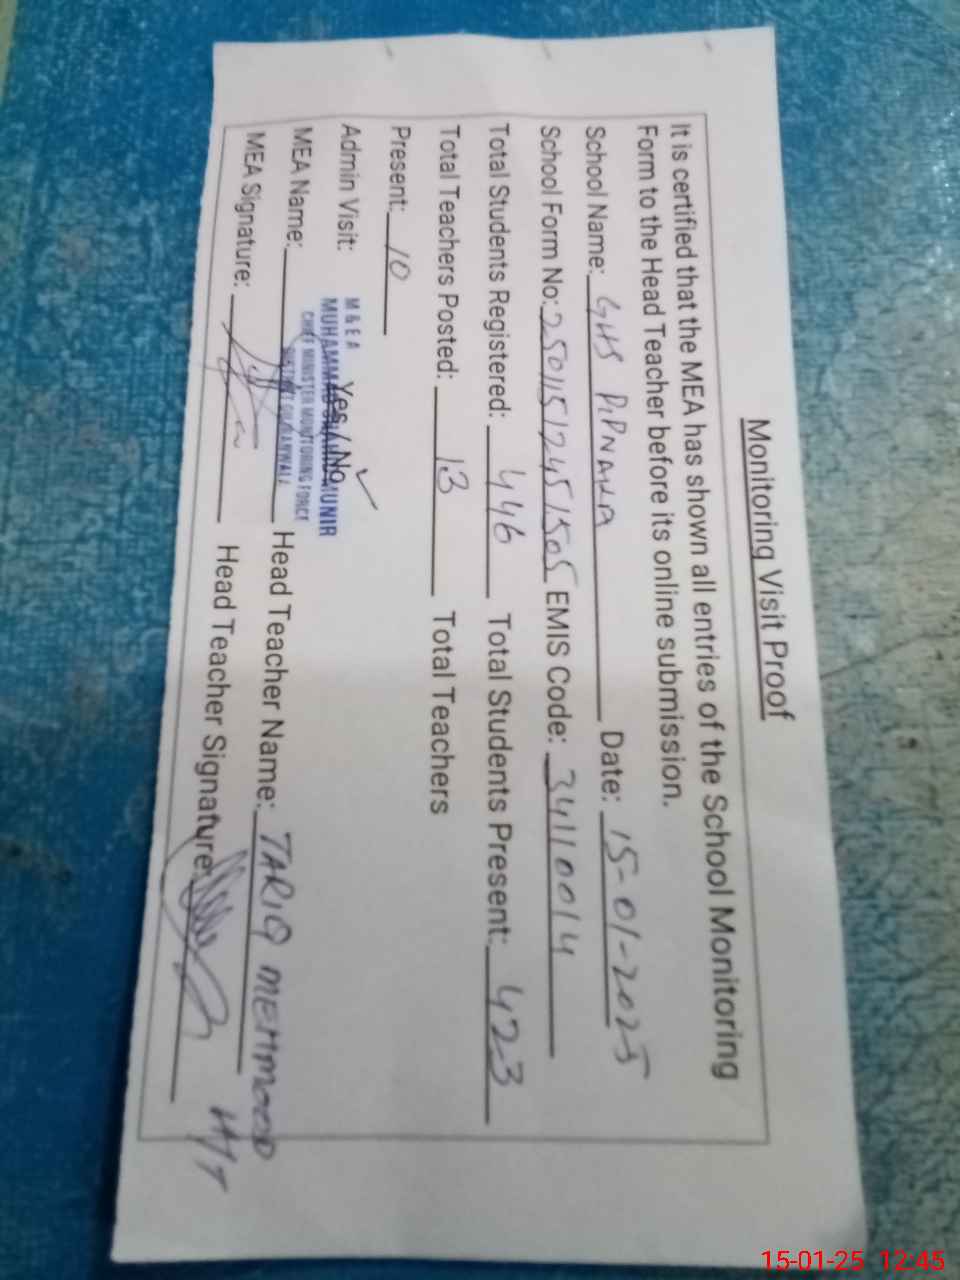 Monitoring Visit Proof
It is certified that the MEA has shown all entries of the School Monitoring
Form to the Head Teacher before its online submission.
School Name: GHS PIPNAKHA Date: 15-01-2025
School Form No: 25011512451505 EMIS Code: 34110014
Total Students Registered: 446 Total Students Present: 423
Total Teachers Posted: 13 Total Teachers
Present: 10
Admin Visit: Yes / No ✓
M & E A
MUHAMMAD MUNIR
CHIEF MINISTER MONITORING FORCE
DISTRICT GUJRANWALA
MEA Name: Head Teacher Name: TARIQ MEHMOOD
MEA Signature: Head Teacher Signature:
15-01-25 12:45